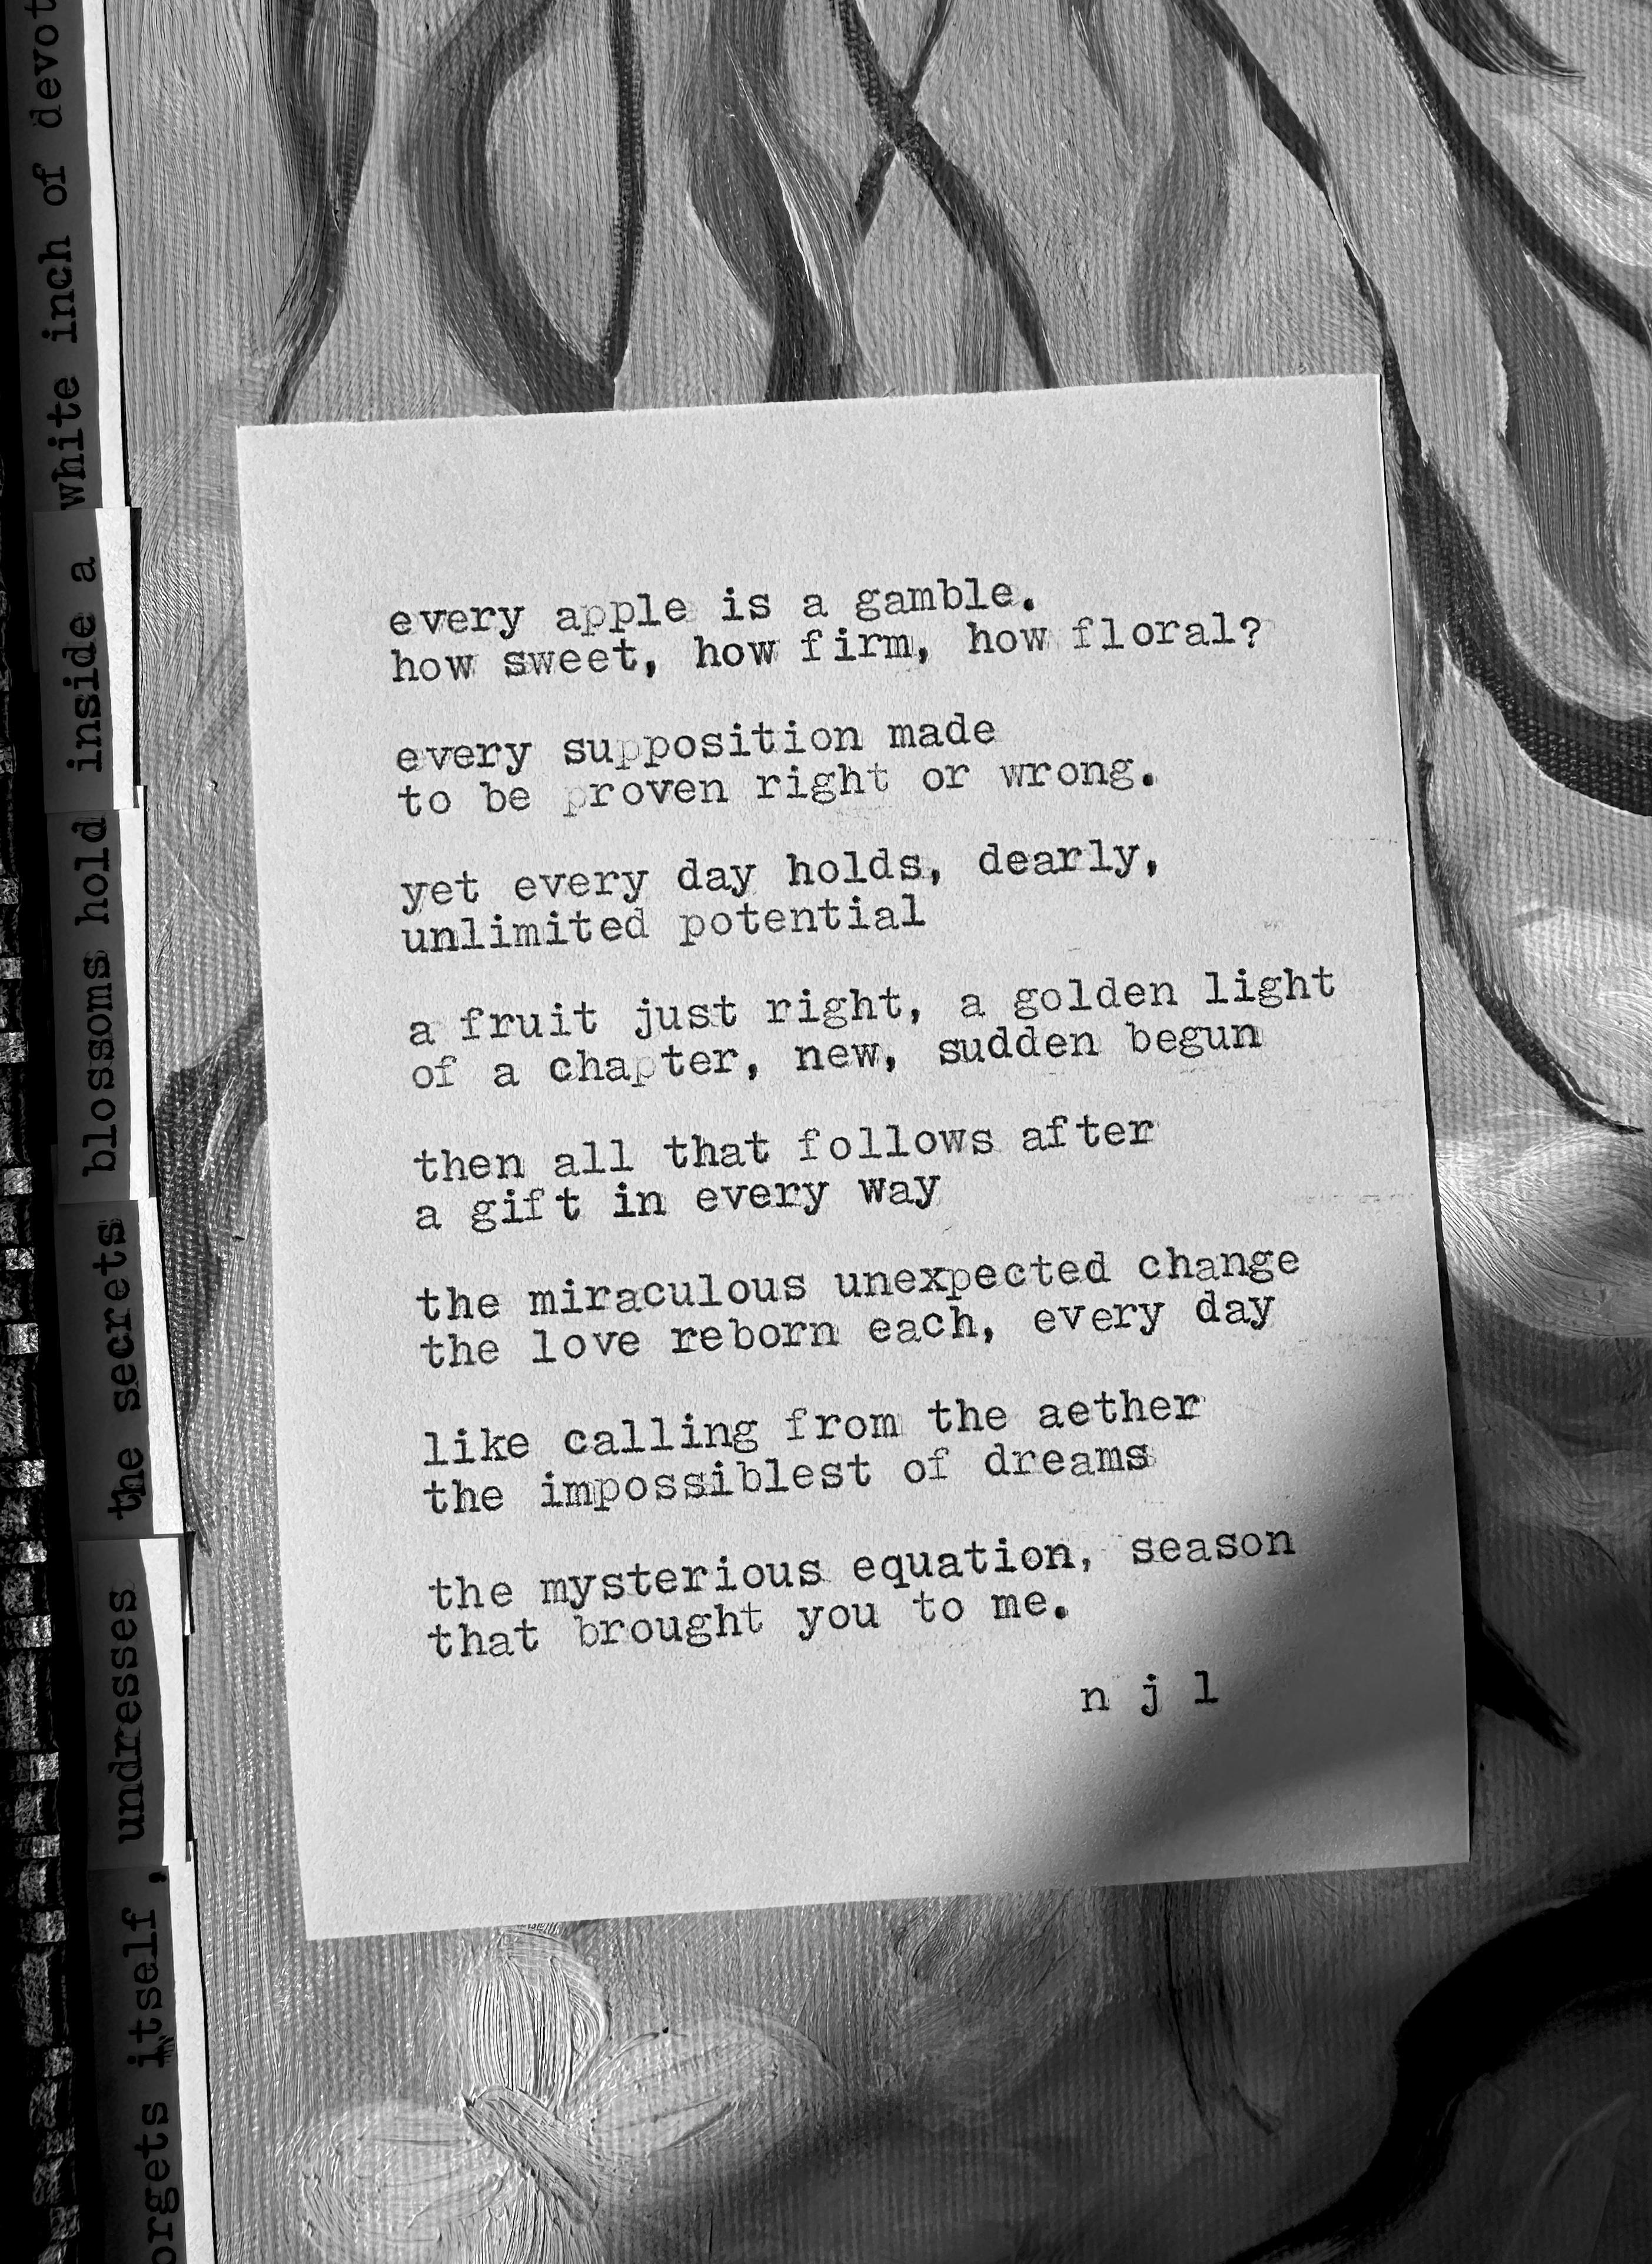 every apple is a gamble.
how sweet, how firm, how floral?
every supposition made
to be proven right or wrong.
yet every day holds, dearly,
unlimited potential
a fruit just right, a golden light
of a chapter, new, sudden begun
then all that follows after
a gift in every way
the miraculous unexpected change
the love reborn each, every day
like calling from the aether
the impossiblest of dreams
the mysterious equation, season
that brought you to me.
n j l
orgets itself, undresses the secrets blossoms hold inside a white inch of devot